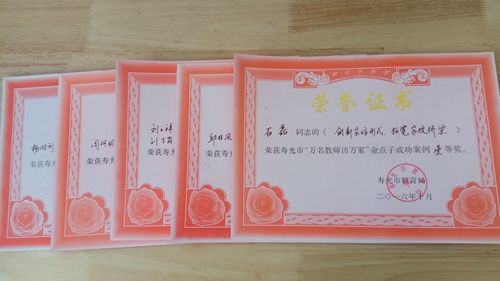 荣誉证书
石磊 同志的《 创新家访形式 拓宽家校桥梁 》
荣获寿光市“万名教师访万家”金点子成功案例 壹 等奖。
寿光市教育局
二〇一六年十月
荣获寿光
荣获寿光
荣获寿光
荣获寿